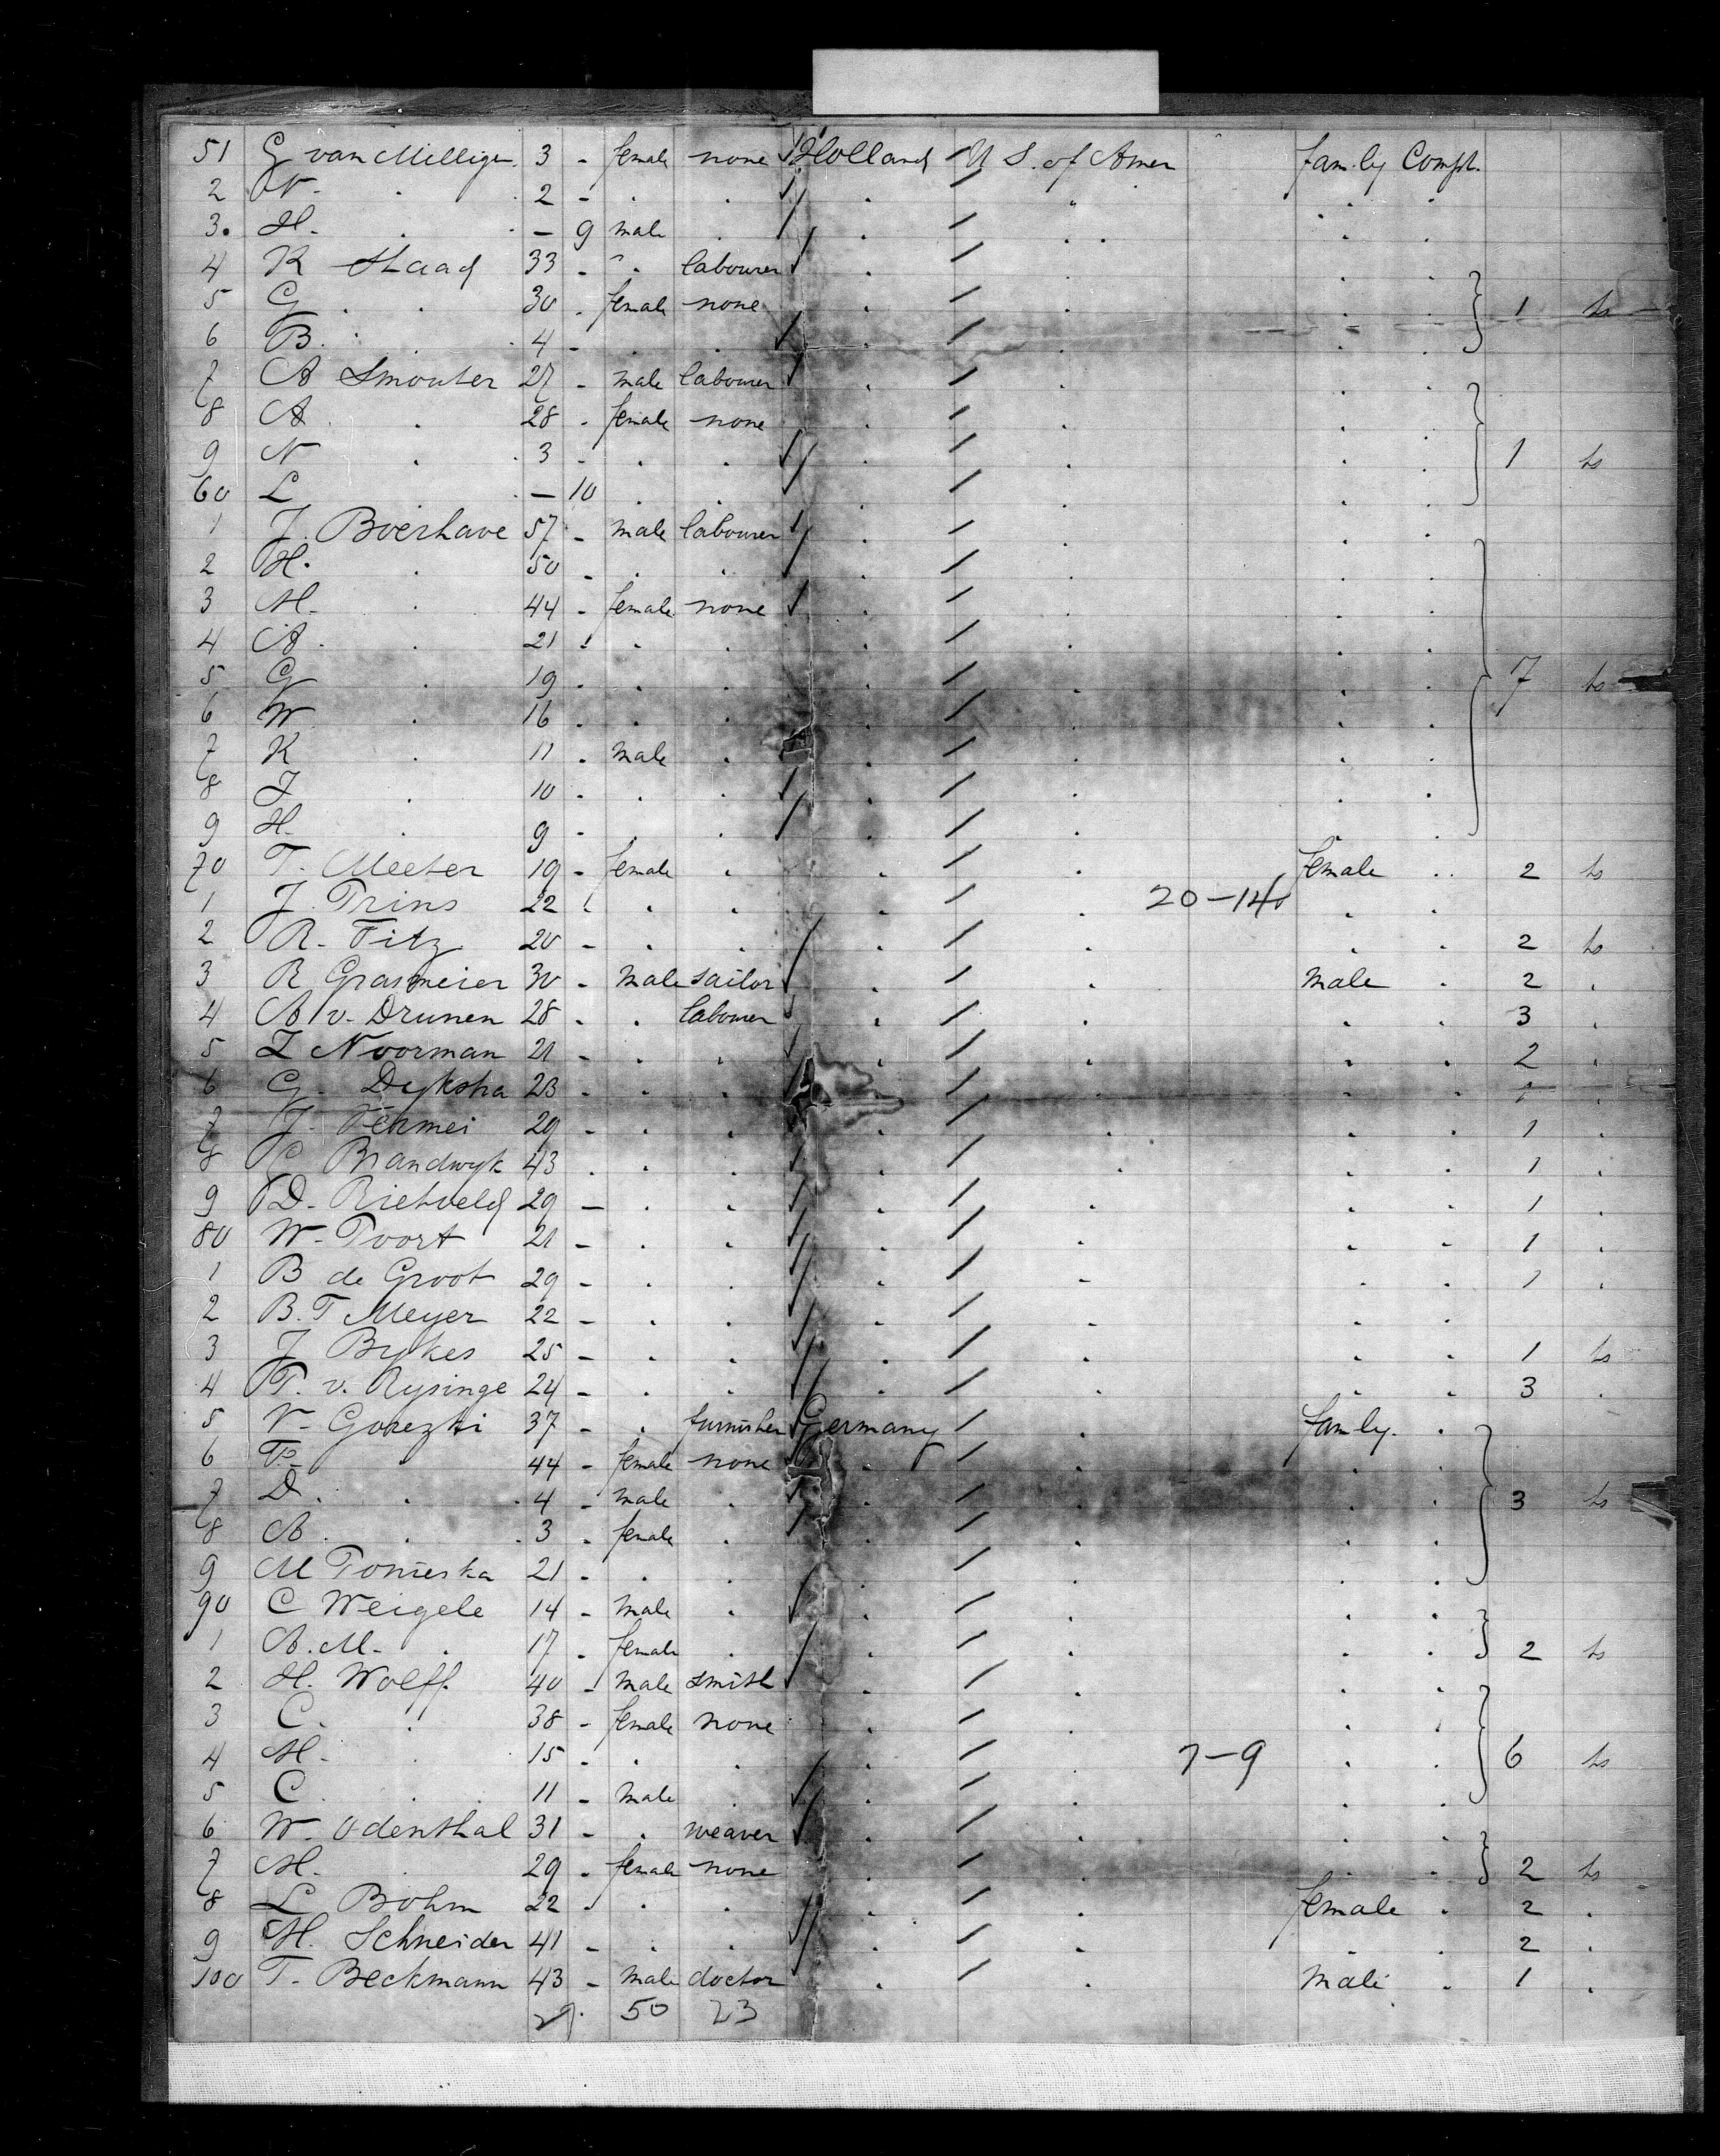 51 G van Milligen 3 - female none Holland U S. of Amer family Compt.
2 N. . 2 - . . . . . .
3. H. . - 9 male . . . . . .
4 K Staad 33 - " . labourer . . . .
5 G . . 30 - female none . . . . 1 ts
6 B. . . 4 - . . . . . .
7 A Smouter 27 - male labourer . . . .
8 A . . 28 - female none . . . .
9 N . . 3 - . . . . . . 1 ts
60 L . - 10 . . . . . .
1 J. Boerhave 57 - male labourer . . . .
2 H. . 50 - . . . . . .
3 M. . 44 - female none . . . .
4 A. . 21 - . . . . . .
5 G . 19 - . . . . . . 7 ts
6 W . 16 - . . . . . .
7 K . 11 - male . . . . .
8 J . 10 - . . . . . .
9 H. . 9 - . . . . . .
70 T. Meeter 19 - female . . . female . . 2 ts
1 J. Prins 22 - . . . . 20-14 . .
2 R. Fitz 20 - . . . . . . 2 ts
3 R Grasmeier 30 - male sailor . . male . 2 .
4 A v. Drunen 28 - . labourer . . . . 3 .
5 Z Noorman 21 - . . . . . . 2 .
6 G. Dykstra 23 - . . . . . . 1 .
7 J. Vermei 29 - . . . . . . 1 .
8 C Brandwyk 43 - . . . . . . 1 .
9 D. Rietveld 29 - . . . . . . 1 .
80 W. Poort 21 - . . . . . . 1 .
1 B de Groot 29 - . . . . . . 1 .
2 B. T Meyer 22 - . . . . . .
3 J Bykes 25 - . . . . . . 1 ts
4 T. v. Rysinge 24 - . . . . . . 3 .
5 V. Gorezki 37 - . furnisher Germany . family . .
6 P. 44 - female none . . . .
7 D. . . 4 - male . . . . . 3 ts
8 A. . . 3 - female . . . . .
9 M Ponieska 21 - . . . . . .
90 C Weigele 14 - male . . . . .
1 A. M. . 17 - female . . . . . 2 ts
2 H. Wolff. 40 - male smith . . . .
3 C. . 38 - female none . . . .
4 M. . 15 - . . . . 7-9 . . 6 ts
5 C . . 11 - male . . . . .
6 W. Odenthal 31 - . weaver . . . .
7 M. . 29 - female none . . . . 2 ts
8 L Bohm 22 - . . . . female . 2 .
9 H. Schneider 41 - . . . . . . 2 .
100 T. Beckmann 43 - male doctor . . male . 1 .
50 23